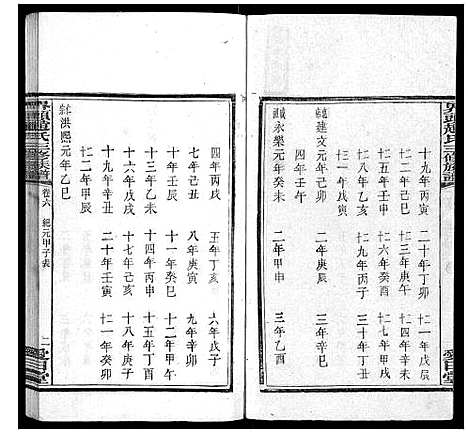 十九年丙寅　二十年丁卯　廿一年戊辰
廿二年己巳　廿三年庚午　廿四年辛未
廿五年壬申　廿六年癸酉　廿七年甲戌
廿八年乙亥　廿九年丙子　三十年丁丑
卅一年戊寅
建文元年己卯　二年庚辰　三年辛巳
永樂元年癸未　二年甲申　三年乙酉
愛日堂
四年丙戌　五年丁亥　六年戊子
七年己丑　八年庚寅　九年辛卯
十年壬辰　十一年癸巳　十二年甲午
十三年乙未　十四年丙申　十五年丁酉
十六年戊戌　十七年己亥　十八年庚子
十九年辛丑　二十年壬寅　廿一年癸卯
廿二年甲辰
洪熙元年乙巳
趙氏三修族譜　卷六　紀元甲子表　二　愛日堂